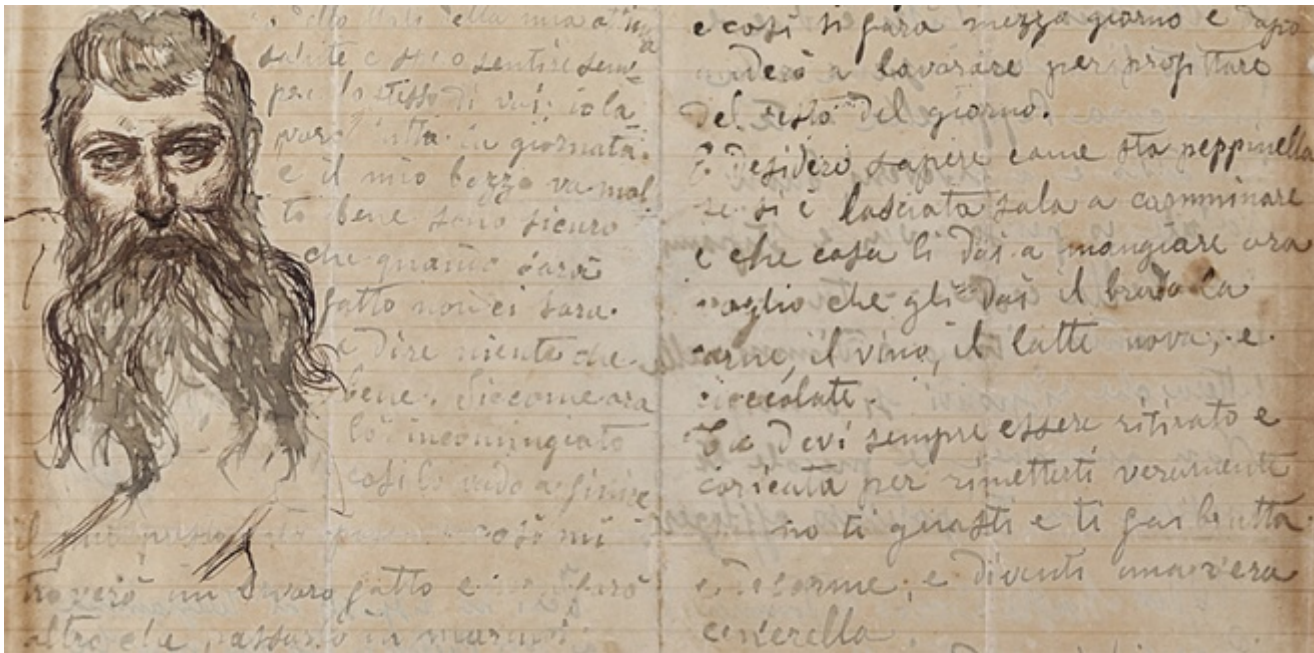 della mia
salute e spero sentire sem
pre lo stesso di voi: io la
voro tutta la giornata.
e il mio bozzo va mol
to bene sono sicuro
che quanto sarà
fatto non ci sara
a dire niente che
bene. Siccome ora
lò incomingiato
cosi lo vado a finire
il così mi
troverò un lavoro fatto e
altro che passarlo in marmo.
e cosi si farà mezzo giorno e dopo
anderò a lavorare per profittare
del resto del giorno.
Desidero sapere come sta peppinella
se si è lasciata sola a camminare
e che cosa li dai a mangiare ora
voglio che gli dai il brodo la
carne, il vino, il latte uova, e.
cioccolate.
Tu devi sempre essere ritirato e
coricata per rimetterti veramente
no ti guasti e ti fai brutta
e deforme, e diventi una vera
cenerella